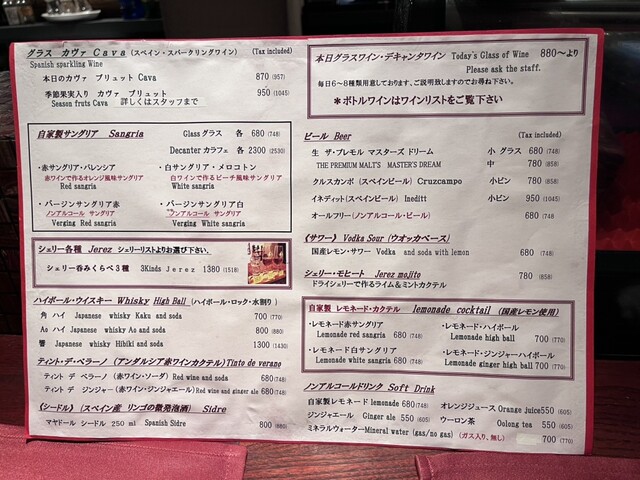 グラス カヴァ Cava (スペイン・スパークリングワイン) (Tax included)
Spanish sparkling Wine
本日のカヴァ ブリュット Cava 870 (957)
季節果実入り カヴァ ブリュット 950 (1045)
Season fruts Cava 詳しくはスタッフまで
自家製サングリア Sangria Glass グラス 各 680 (748)
Decanter カラフェ 各 2300 (2530)
・赤サングリア・バレンシア ・白サングリア・メロコトン
赤ワインで作るオレンジ風味サングリア 白ワインで作るピーチ風味サングリア
Red sangria White sangria
・バージンサングリア赤 ・バージンサングリア白
ノンアルコール サングリア ノンアルコール サングリア
Verging Red sangria Verging White sangria
シェリー各種 Jerez シェリーリストよりお選び下さい。
シェリー呑みくらべ3種 3Kinds Jerez 1380 (1518)
ハイボール・ウイスキー Whisky High Ball (ハイボール・ロック・水割り)
角 ハイ Japanese whisky Kaku and soda 700 (770)
Ao ハイ Japanese whisky Ao and soda 800 (880)
響 Japanese whisky Hibiki and soda 1300 (1430)
ティント・デ・ベラーノ (アンダルシア赤ワインカクテル) Tinto de verano
ティント デ ベラーノ (赤ワイン・ソーダ) Red wine and soda 680 (748)
ティント デ ジンジャー (赤ワイン・ジンジャエール) Red wine and ginger ale 680 (748)
《シードル》 (スペイン産 リンゴの微発泡酒) Sidre
マヤドール シードル 250 ml Spanish Sidre 800 (880)
本日グラスワイン・デキャンタワイン Today's Glass of Wine 880～より
Please ask the staff.
毎日6～8種類用意しております、ご説明致しますのでお尋ね下さい。
＊ボトルワインはワインリストをご覧下さい
ビール Beer (Tax included)
生 ザ・プレモル マスターズ ドリーム 小 グラス 680 (748)
THE PREMIUM MALT'S MASTER'S DREAM 中 780 (858)
クルスカンポ (スペインビール) Cruzcampo 小ビン 780 (858)
イネディット(スペインビール) Ineditt 小ビン 950 (1045)
オールフリー(ノンアルコール・ビール) 680 (748
《サワー》 Vodka Sour (ウオッカベース)
国産レモン・サワー Vodka and soda with lemon 680 (748)
シェリー・モヒート Jerez mojito 780 (858)
ドライシェリーで作るライム&ミントカクテル
自家製 レモネード・カクテル lemonade cocktail (国産レモン使用)
・レモネード赤サングリア ・レモネード・ハイボール
Lemonade red sangria 680 (748) Lemonade high ball 700 (770)
・レモネード白サングリア ・レモネード・ジンジャーハイボール
Lemonade white sangria 680 (748) Lemonade ginger high ball 700 (770)
ノンアルコールドリンク Soft Drink
自家製レモネード lemonade 680 (748) オレンジジュース Orange Juice 550 (605)
ジンジャエール Ginger ale 550 (605) ウーロン茶 Oolong tea 550 (605)
ミネラルウォーター Mineral water (gas/no gas) (ガス入り、無し) 700 (770)